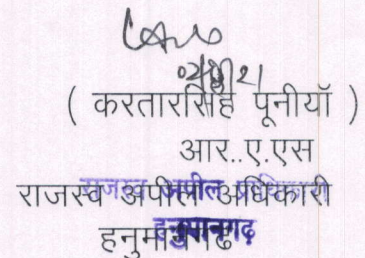 ( करतारसिंह पूनीयॉ )
आर..ए.एस
राजस्व अपील अधिकारी
हनुमानगढ
राजस्व अपील
हनुमानगढ़